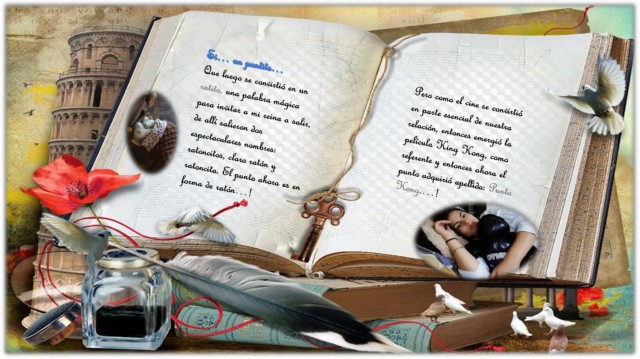 Si… un puntito…
Que luego se convirtió en un
ratito, una palabra mágica
para invitar a mi reina a salir,
de allí salieron dos
espectaculares nombres:
ratoncitos, claro ratón y
ratoncita. El punto ahora es en
forma de ratón…!
Pero como el cine se convirtió
en parte esencial de nuestra
relación, entonces emergió la
película King Kong, como
referente y entonces ahora el
punto adquirió apellido: Punto
Kong….!